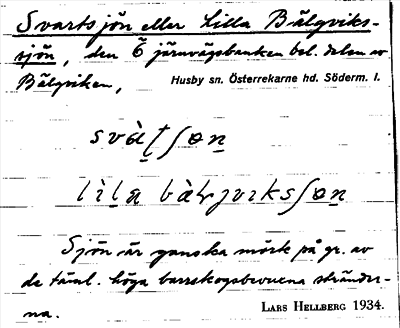 Svartsjön eller Lilla Bälgviks-
sjön, den Ö järnvägsbanken bel. delen av
Bälgviken, Husby sn. Österrekarne hd. Söderm. l.
Sjön är ganska mörk på gr. av
de täml. höga barrskogsbevuxna stränder-
na. LARS HELLBERG 1934.